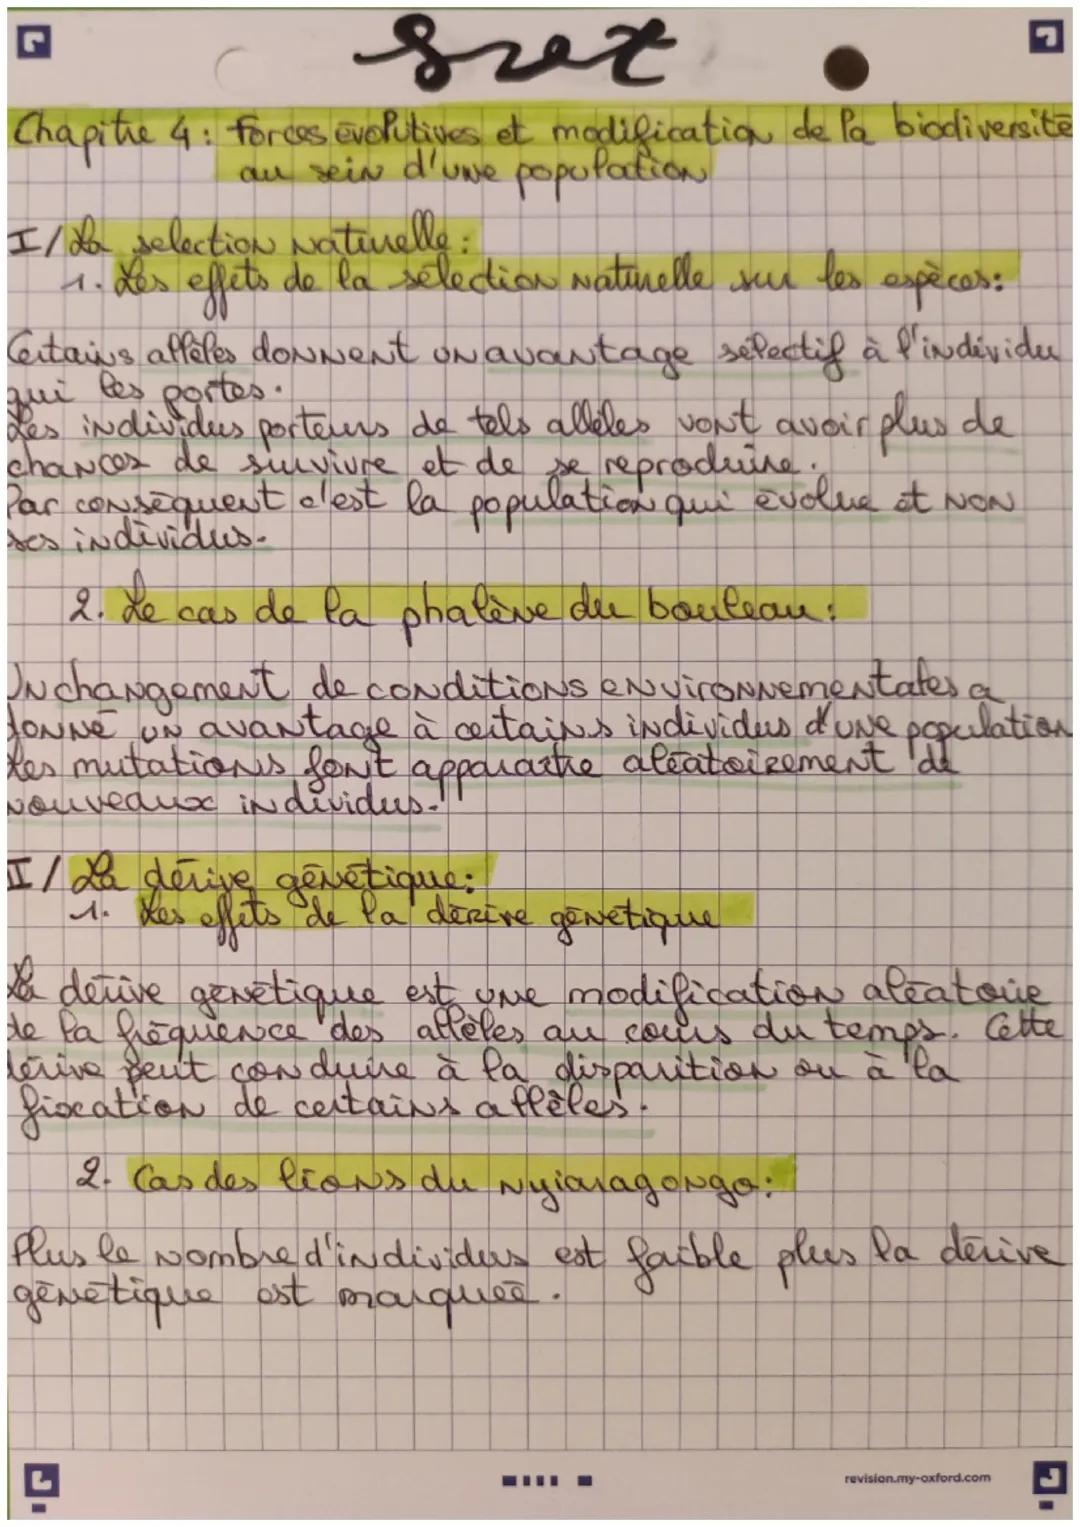 svt
Chapitre 4 : forces évolutives et modification de la biodiversité
au sein d'une population
I/ La selection naturelle :
1. Les effets de la sélection naturelle sur les espèces :
Certains allèles donnent un avantage sélectif à l'individu
qui les portes.
Les individus porteurs de tels allèles vont avoir plus de
chances de survivre et de se reproduire.
Par conséquent c'est la population qui évolue et non
ses individus.
2. Le cas de la phalène du bouleau :
Un changement de conditions environnementales a
donné un avantage à certains individus d'une population
Les mutations font apparaitre aléatoirement de
nouveaux individus.
I/ La dérive génétique :
1. Les effets de la dérive génétique
La dérive génétique est une modification aléatoire
de la fréquence des allèles au cours du temps. Cette
dérive peut conduire à la disparition ou à la
fixation de certains allèles.
2. Cas des lions du Nyiaragongo :
Plus le nombre d'individus est faible plus la dérive
génétique est marquée.
revision.my-oxford.com